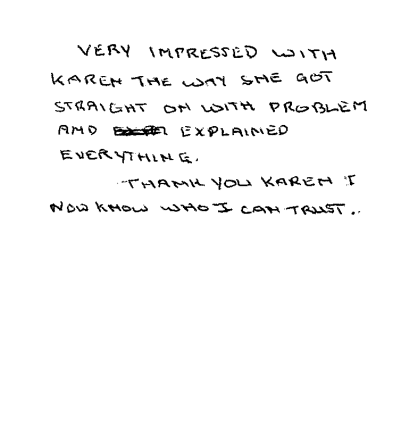 VERY IMPRESSED WITH
KAREN THE WAY SHE GOT
STRAIGHT ON WITH PROBLEM
AND EXPLAINED
EVERYTHING.
THANK YOU KAREN I
NOW KNOW WHO I CAN TRUST..